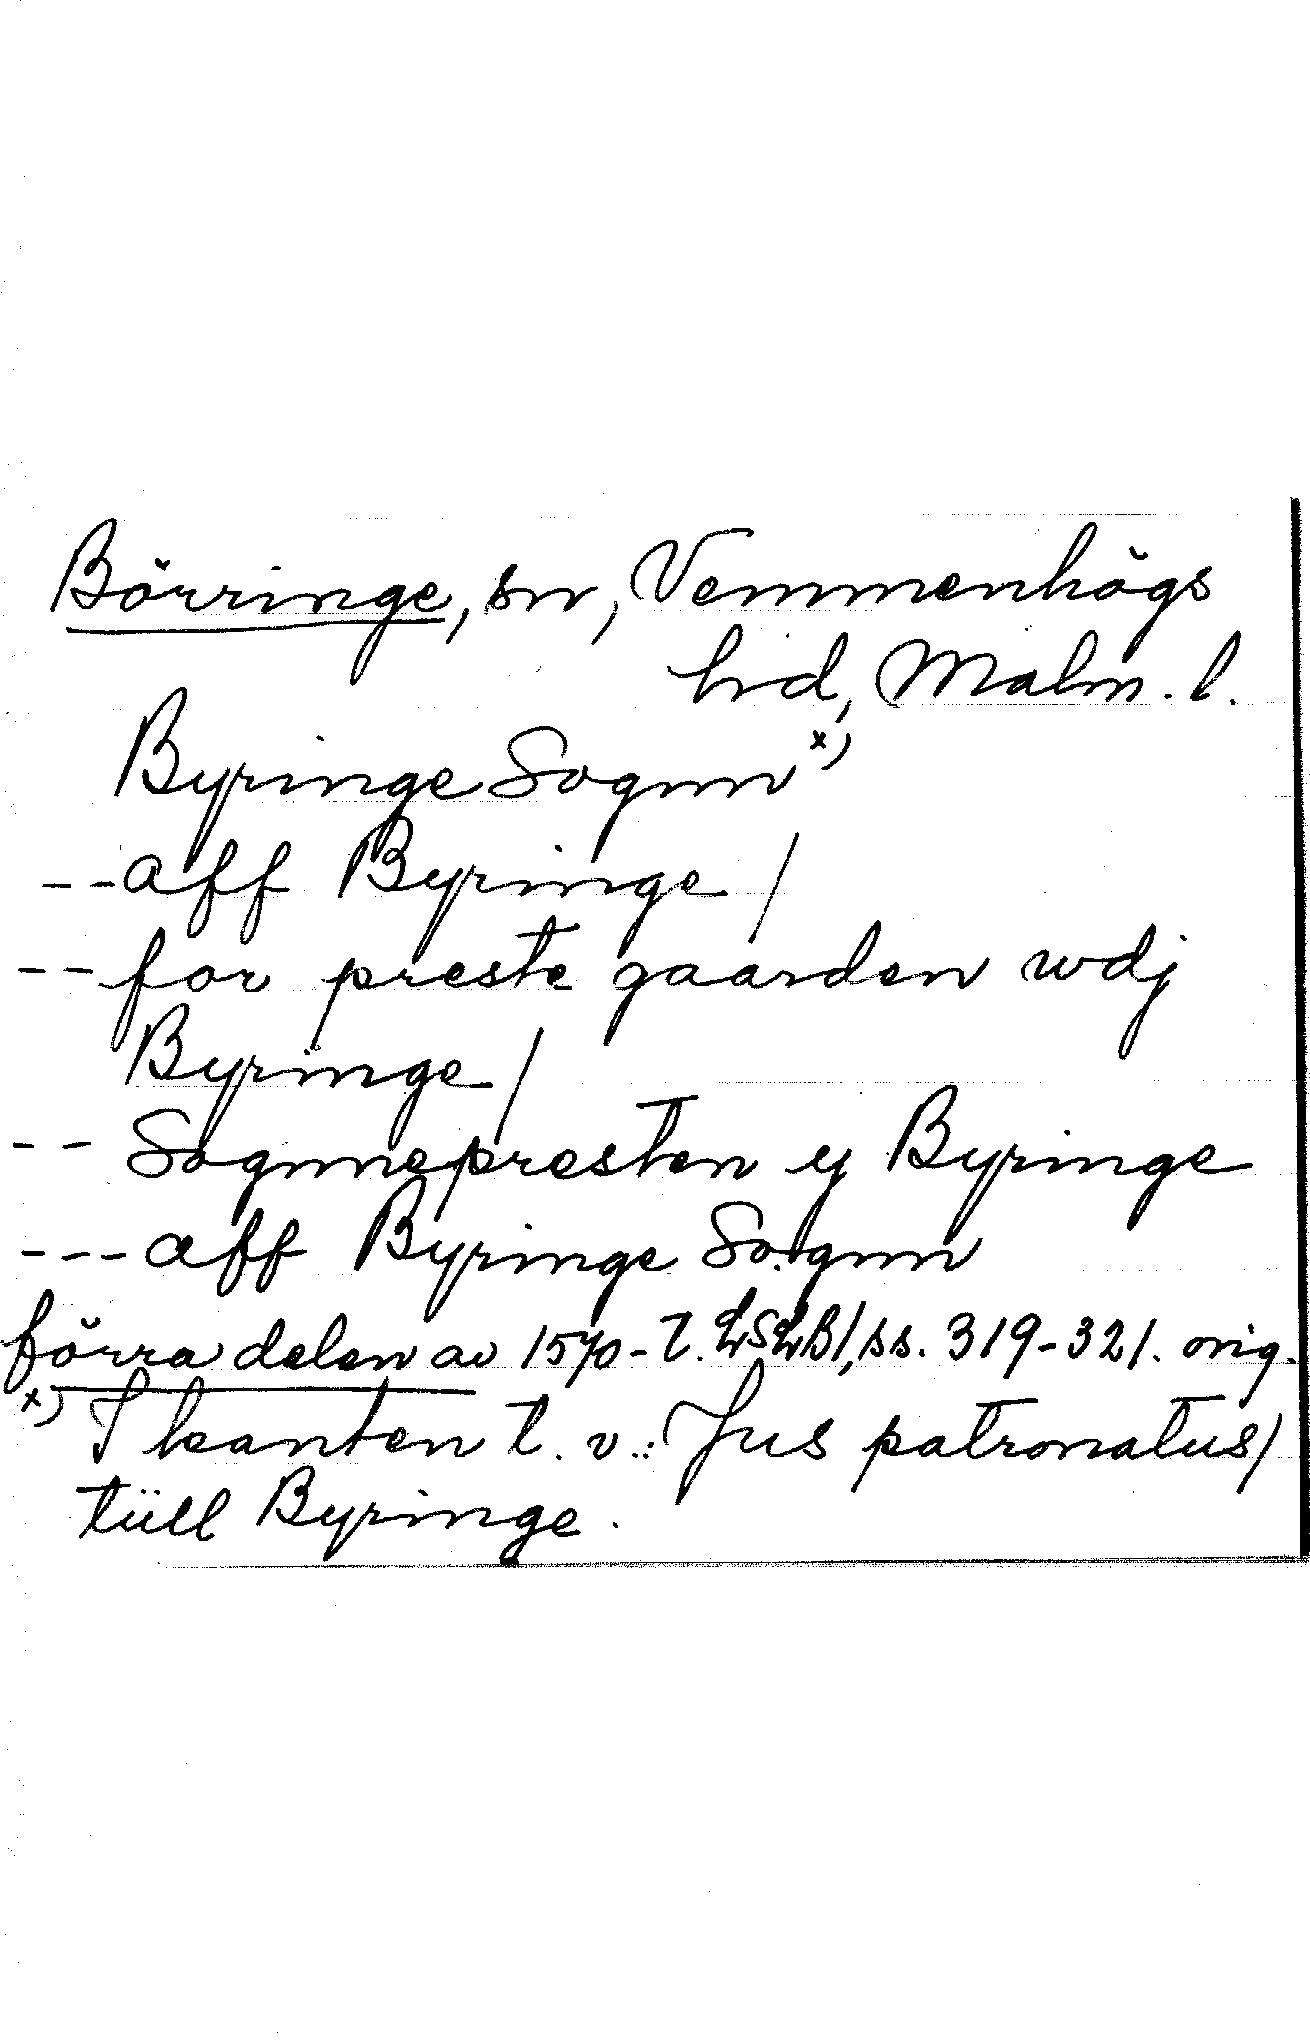 Börringe, sn, Vemmenhögs
hd, Malm. l.
Byringe Sognn x)
-- aff Byringe /
-- for preste gaarden wdj
Byringe /
-- Sognnepresten y Byringe
--- aff Byringe Sognn
förra delen av 1570-t. LSLB1, ss. 319-321. orig.
x) I kanten t. v.: Jus patronatus/
tüll Byringe.